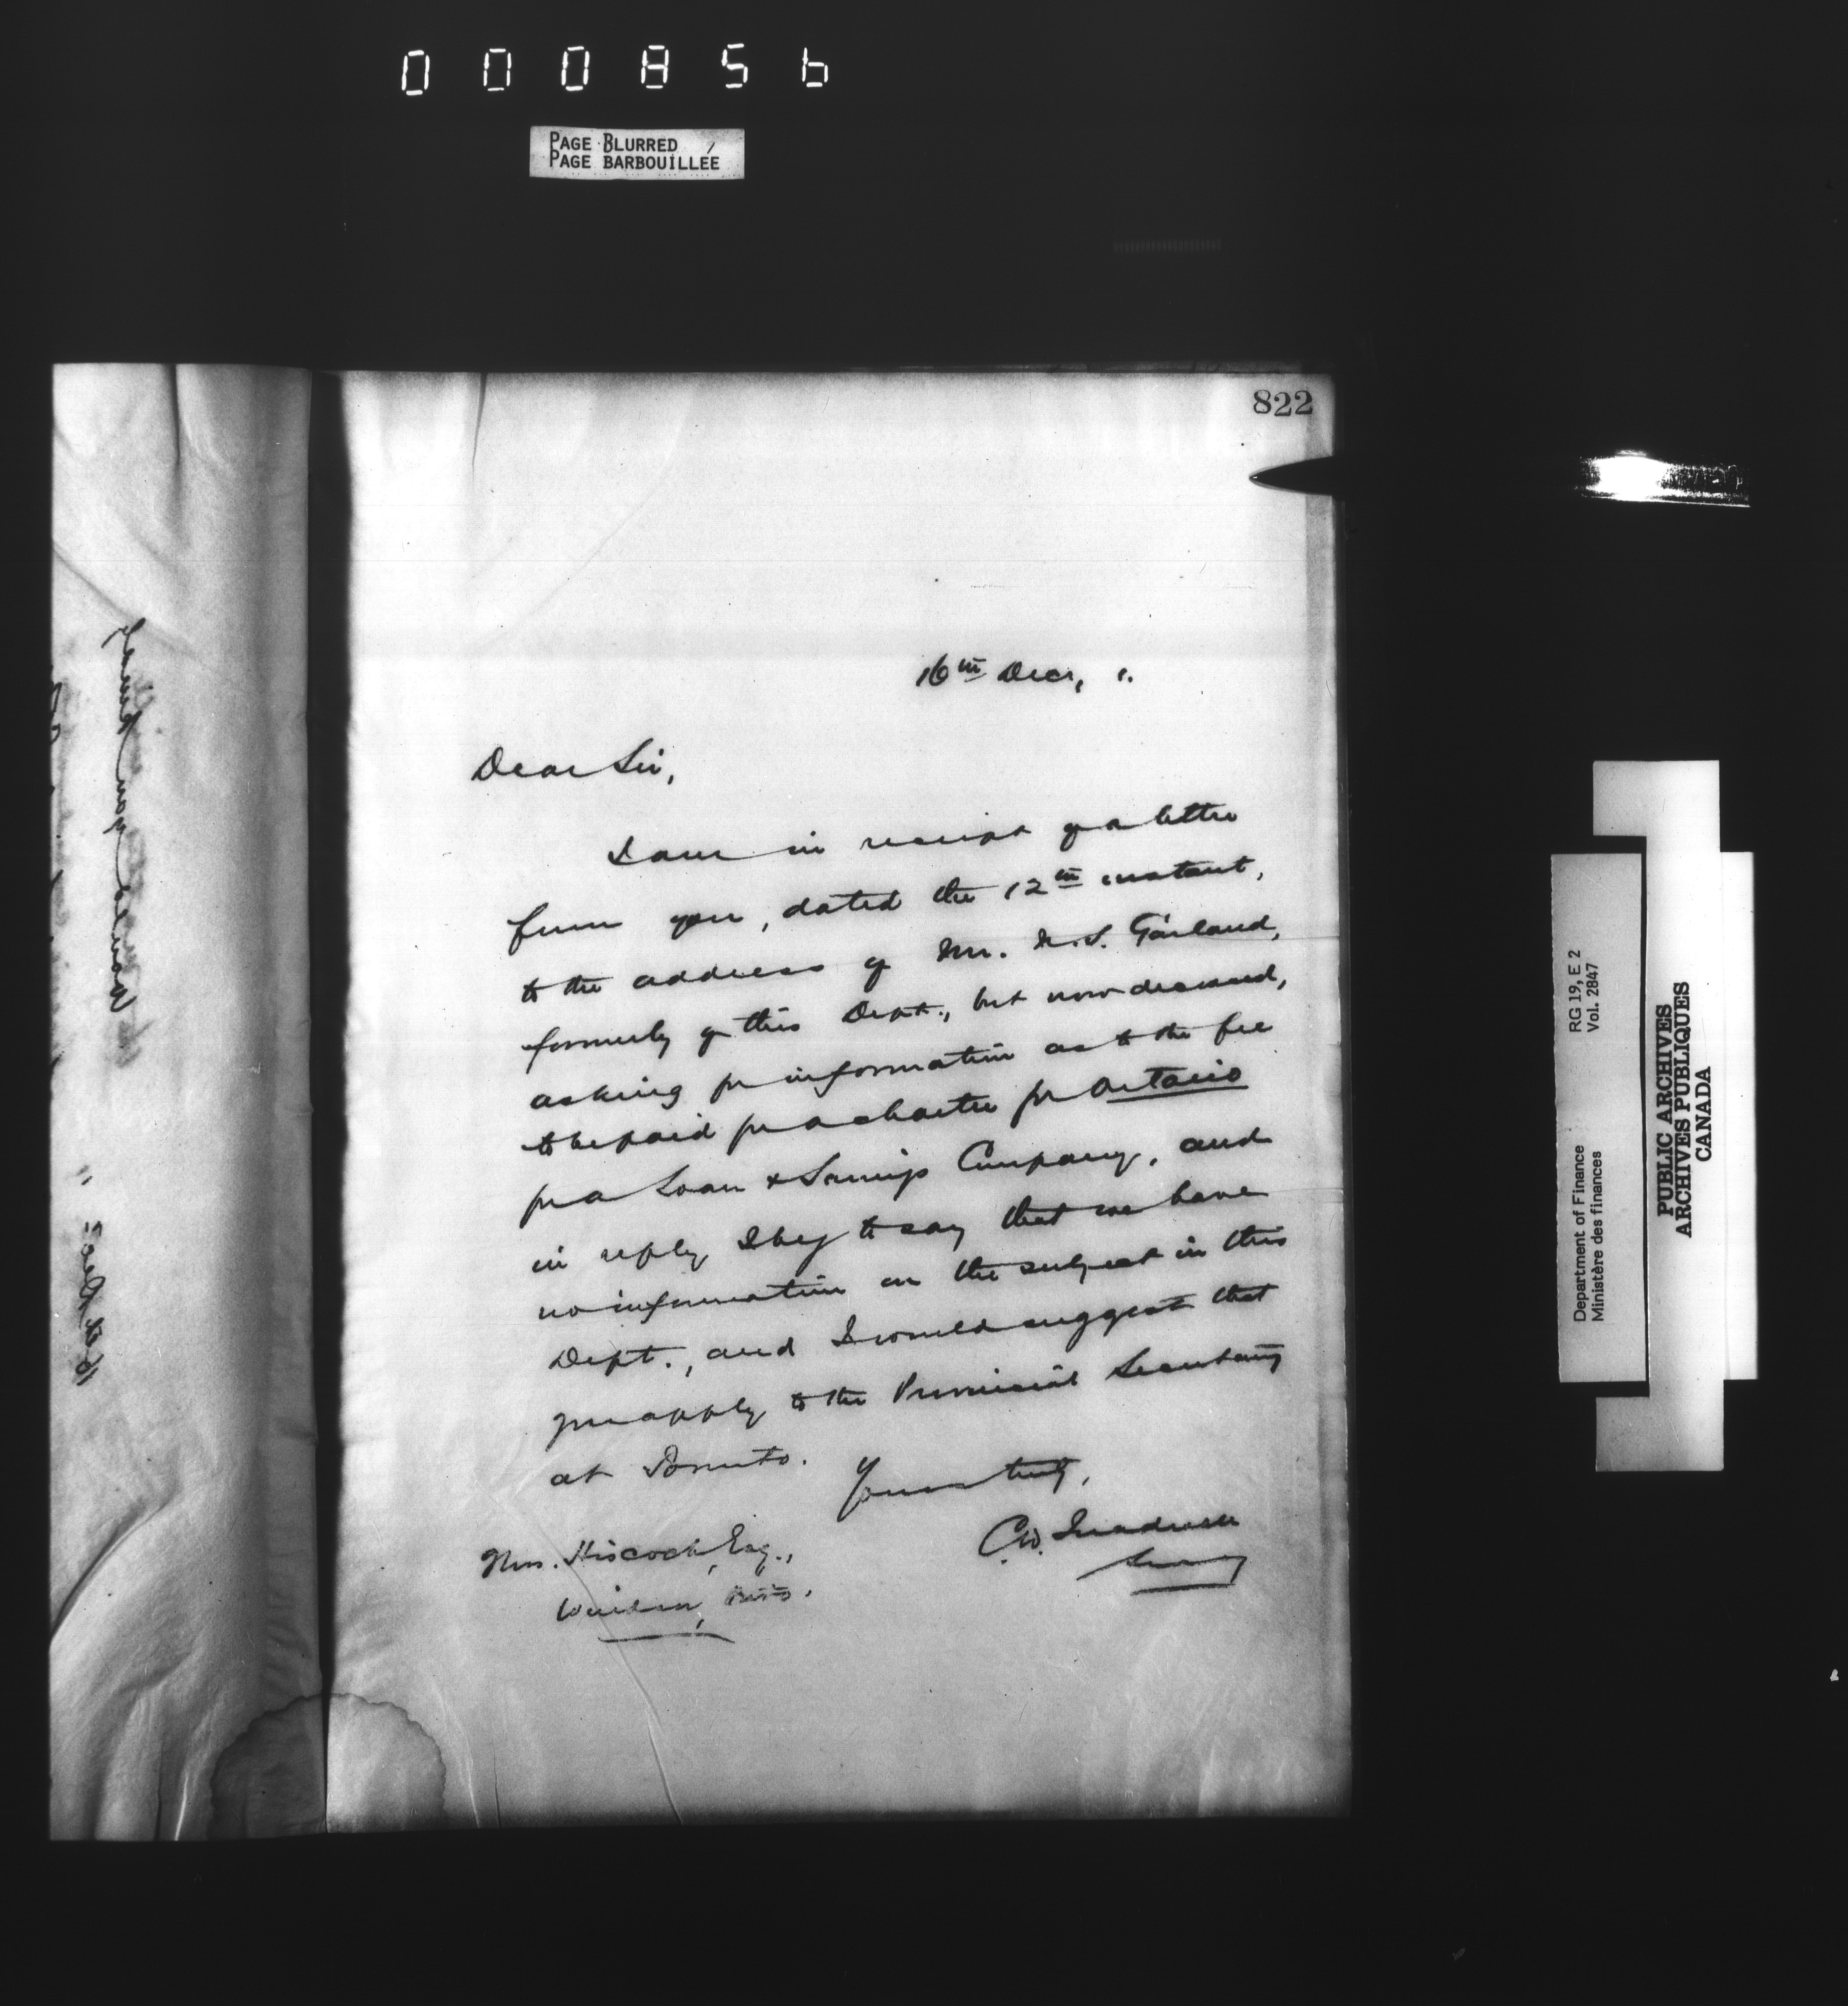 000856
PAGE BLURRED
PAGE BARBOUILLÉE
822
16th Decr, 1.
Dear Sir,
I am in receipt of a letter
from you, dated the 12th instant,
to the address of Mr. N.S. Garland,
formerly of this Dept., but now deceased,
asking for information as to the fee
to be paid for a charter for Ontario
for a Loan & Savings Company, and
in reply I beg to say that we have
no information on the subject in this
Dept., and I would suggest that
you apply to the Provincial Secretary
at Toronto.
Yours truly,
C.W. Treadwell
Secy
Hiscock, Esq.,
Windsor,
RG 19, E 2
Vol. 2847
Department of Finance
Ministère des finances
PUBLIC ARCHIVES
ARCHIVES PUBLIQUES
CANADA